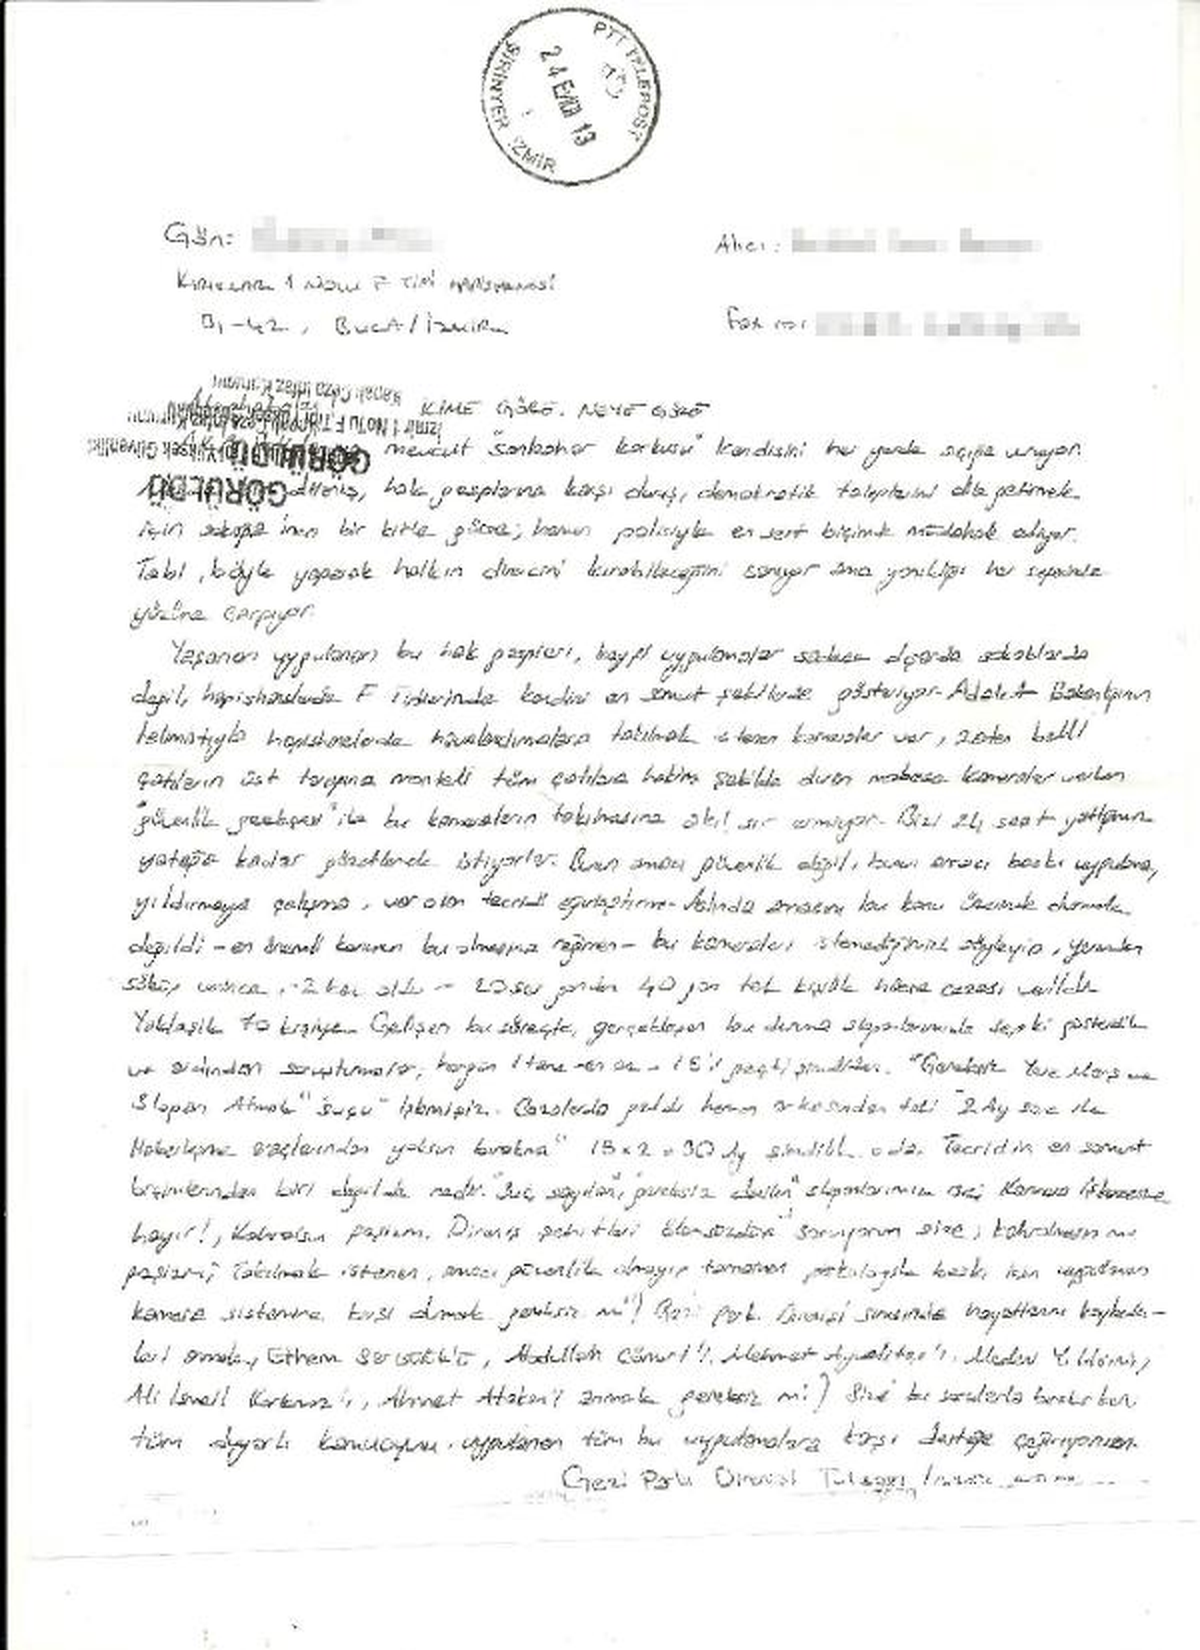 PTT TELEPOST
24 Eylül 13
ŞİRİNYER İZMİR
Gön:
Alıcı:
KIRIKLAR 1 NOLU F TİPİ HAPİSHANESİ
B1-42, BUCA/İZMİR
Fax no:
KİME GÖRE, NEYE GÖRE
GÖRÜLDÜ
GÖRÜLDÜ
mevcut "sonbahar korkusu" kendisini her yerde açığa vuruyor.
direniş, hak gasplarına karşı duruş, demokratik taleplerini dile getirmek
için sokağa inen bir kitle görse, hemen polisiyle en sert biçimde müdahale ediyor.
Tabi, böyle yaparak halkın direncini kırabileceğini sanıyor ama yenilgi her seferinde
yüzüne çarpıyor.
Yaşanan uygulanan bu hak gaspları, keyfi uygulamalar sadece dışarda sokaklarda
değil, hapishanelerde F Tiplerinde kendini en somut şekilde gösteriyor. Adalet Bakanlığının
talimatıyla hapishanelerde havalandırmalara takılmak istenen kameralar var, zaten belli
çatıların üst tarafına monteli tüm çatılara hakim şekilde duran mobese kameralar varken
"güvenlik gerekçesi" ile bu kameraların takılmasına akıl sır ermiyor. Bizi 24 saat yattığımız
yatağa kadar gözetlemek istiyorlar. Bunun amacı güvenlik değil, bunun amacı baskı uygulama,
yıldırmaya çalışma, var olan tecridi ağırlaştırma. Aslında amacım bu konu üzerinde durmak
değildi - en önemli konunun bu olmasına rağmen - bu kameraları istemediğimizi söyleyip, yerinden
söküp verince, 20şer günden 40 gün tek kişilik hücre cezası verildi
Yaklaşık 70 kişiye. Gelişen bu süreçte, gerçekleşen bu duruma sloganlarımızla tepki gösterdik
ve ardından soruşturmalar, hergün 1 tane -en az- 15'i geçti şimdiden. "Gereksiz Yere Marş ve
Slogan Atmak" "suçu" işlemişiz. Cezalarda geldi hemen arkasından tabi "2 Ay süre ile
Haberleşme araçlarından yoksun bırakma" 15x2=30 Ay şimdilik oda. Tecridin en somut
biçimlerinden biri değilde nedir. "Suç sayılan", "gereksiz denilen" sloganlarımız Kamera İşkencesine
hayır!, Kahrolsun faşizm, Direniş şehitleri ölümsüzdür" soruyorum size; kahrolmasın mı
faşizm; Takılmak istenen, amacı güvenlik olmayıp tamamen psikolojik baskı için uygulanan
kamera sistemine karşı durmak gereksiz mi? Gezi Park Direnişi sırasında hayatlarını kaybeden-
leri anmak, Ethem Sarısülük'ü, Abdullah Cömert'i, Mehmet Ayvalıtaş'ı, Medeni Yıldırım'ı,
Ali İsmail Korkmaz'ı, Ahmet Atakan'ı anmak gereksiz mi? Sizi bu sorularla bırakırken
tüm duyarlı kamuoyunu uygulanan tüm bu uygulamalara karşı desteğe çağırıyorum.
Gezi Parkı Direnişi Tutsağı